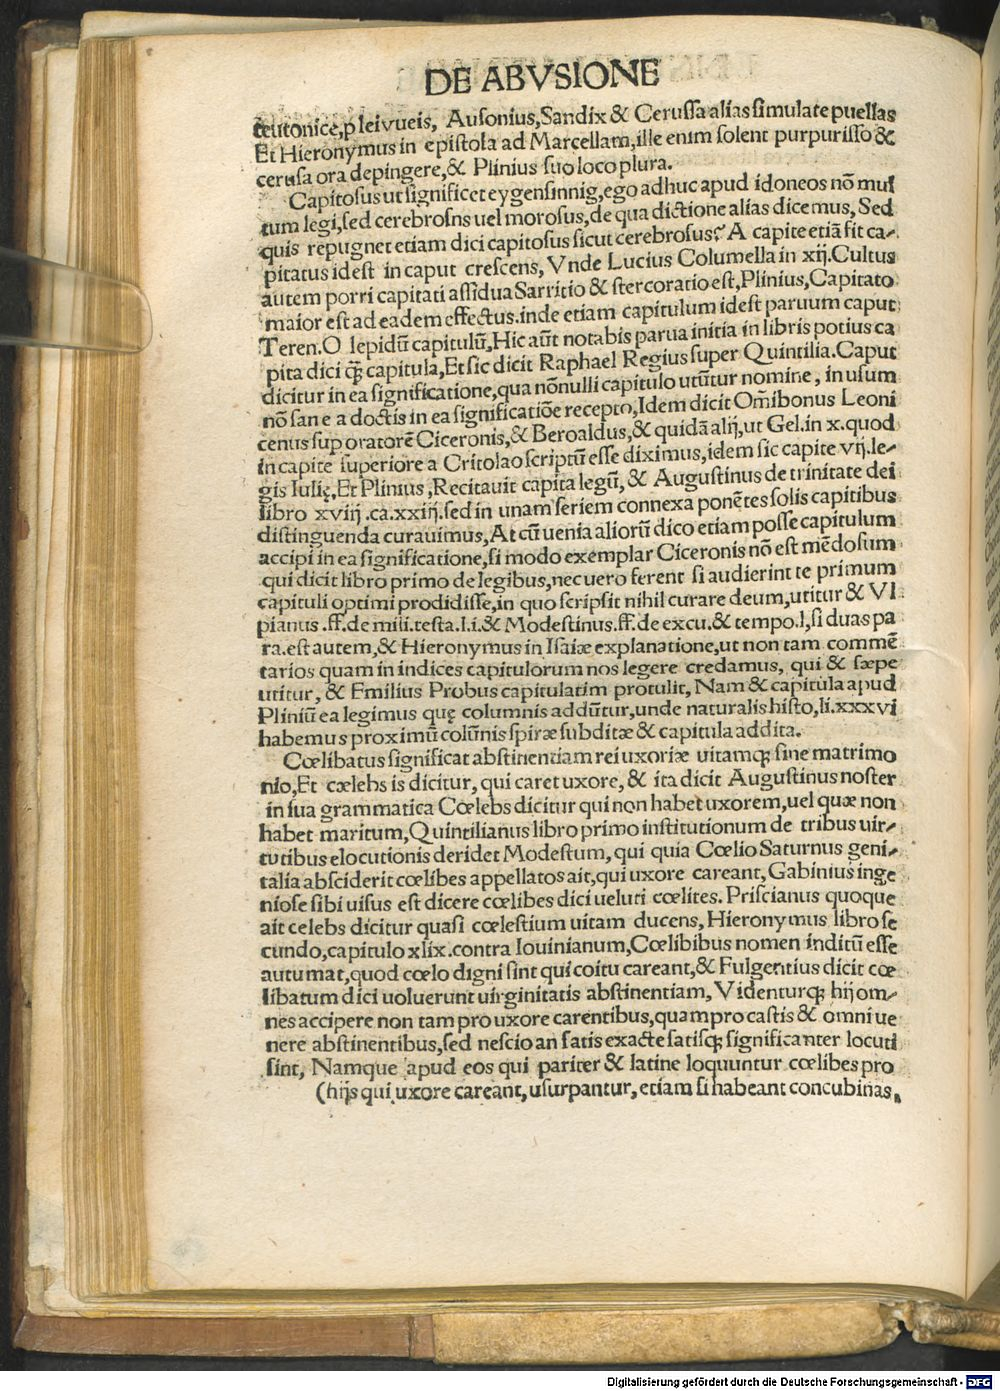 DE ABVSIONE
teutonice,p leivueis, Ausonius,Sandix & Cerussa alias simulate puellas
Et Hieronymus in epistola ad Marcellam,ille enim solent purpurisso &
cerusa ora depingere,& Plinius suo loco plura.
Capitosus ut significet eygensinnig,ego adhuc apud idoneos nō mul
tum legi,sed cerebrosns uel morosus,de qua dictione alias dicemus, Sed
quis repugnet etiam dici capitosus sicut cerebrosus? A capite etiā fit ca-
pitatus idest in caput crescens, Vnde Lucius Columella in xij.Cultus
autem porri capitati assidua Sarritio & stercoratio est,Plinius,Capitato
maior est ad eadem effectus.inde etiam capitulum idest paruum caput
Teren.O lepidū capitulū,Hic aūt notabis parua initia in libris potius ca
pita dici q̄ȝ capitula,Et sic dicit Raphael Regius super Quintilia.Caput
dicitur in ea significatione,qua nōnulli capitulo utūtur nomine, in usum
nō sane a doctis in ea significatiōe recepto,Idem dicit Om̄ibonus Leoni
cenus sup oratorē Ciceronis,& Beroaldus,& quidā alij,ut Gel.in x.quod
in capite superiore a Critolao scriptū esse diximus,idem sic capite vij.le-
gis Iulię,Et Plinius ,Recitauit capita legū, & Augustinus de trinitate dei
libro xviij .ca.xxiij.sed in unam seriem connexa ponētes solis capitibus
distinguenda curauimus,At cū uenia aliorū dico etiam posse capitulum
accipi in ea significatione,si modo exemplar Ciceronis nō est mēdosum
qui dicit libro primo de legibus,nec uero ferent si audierint te primum
capituli optimi prodidisse,in quo scripsit nihil curare deum,utitur & Vl
pianus .ff.de mili.testa.l.i.& Modestinus.ff.de excu.& tempo.l,si duas pa
ra.est autem,& Hieronymus in Isaiæ explanatione,ut non tam commē
tarios quam in indices capitulorum nos legere credamus, qui & sæpe
utitur, & Emilius Probus capitulatim protulit, Nam & capitula apud
Pliniū ea legimus quę columnis addūtur,unde naturalis histo,li.xxxvi
habemus proximū colūnis spiræ subditæ & capitula addita.
Cœlibatus significat abstinentiam rei uxoriæ uitamqȝ sine matrimo
nio,Et cælebs is dicitur, qui caret uxore, & ita dicit Augustinus noster
in sua grammatica Cœlebs dicitur qui non habet uxorem,uel quæ non
habet maritum,Quintilianus libro primo institutionum de tribus uir-
tutibus elocutionis deridet Modestum, qui quia Cœlio Saturnus geni-
talia absciderit cœlibes appellatos ait,qui uxore careant, Gabinius inge
niose sibi uisus est dicere cœlibes dici ueluti cœlites. Priscianus quoque
ait celebs dicitur quasi cœlestium uitam ducens, Hieronymus libro se
cundo,capitulo xlix.contra Iouinianum,Cœlibibus nomen inditū esse
autumat,quod cœlo digni sint qui coitu careant,& Fulgentius dicit cœ
libatum dici uoluerunt uirginitatis abstinentiam, Videnturqȝ hij om-
nes accipere non tam pro uxore carentibus,quam pro castis & omni ue
nere abstinentibus,sed nescio an satis exacte satisqȝ significanter locuti
sint, Namque apud eos qui pariter & latine loquuntur cœlibes pro
(hijs qui uxore careant, usurpantur, etiam si habeant concubinas,
Digitalisierung gefördert durch die Deutsche Forschungsgemeinschaft - DFG